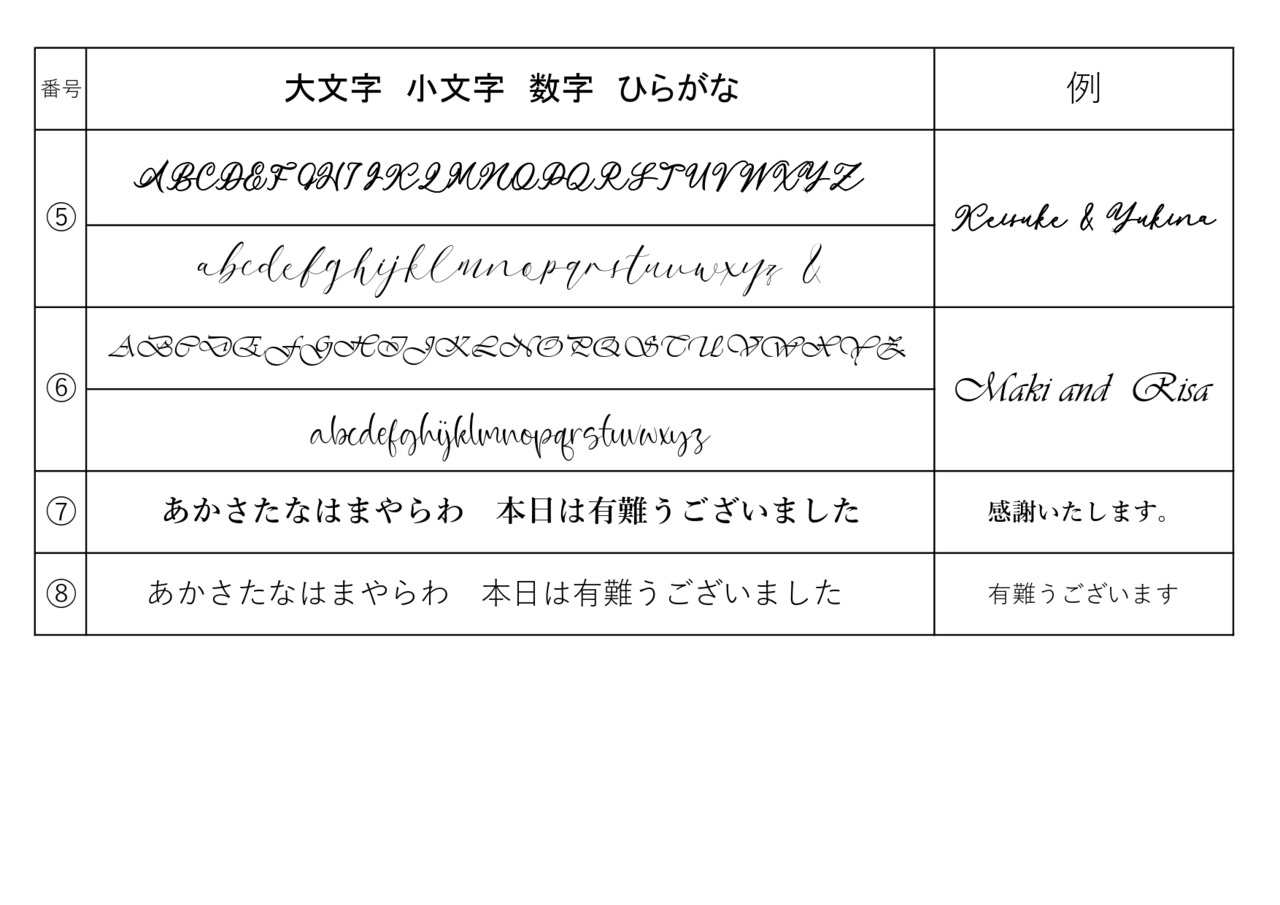 番号 大文字 小文字 数字 ひらがな 例
⑤
ABCDEFGHIJKLMNOPQRSTUVWXYZ
abcdefghijklmnopqrstuvwxyz &
Keisuke & Yukina
⑥
ABCDEFGHIJKLNOPQSTUVWXYZ
abcdefghijklmnopqrstuvwxyz
Maki and Risa
⑦ あかさたなはまやらわ 本日は有難うございました 感謝いたします。
⑧ あかさたなはまやらわ 本日は有難うございました 有難うございます